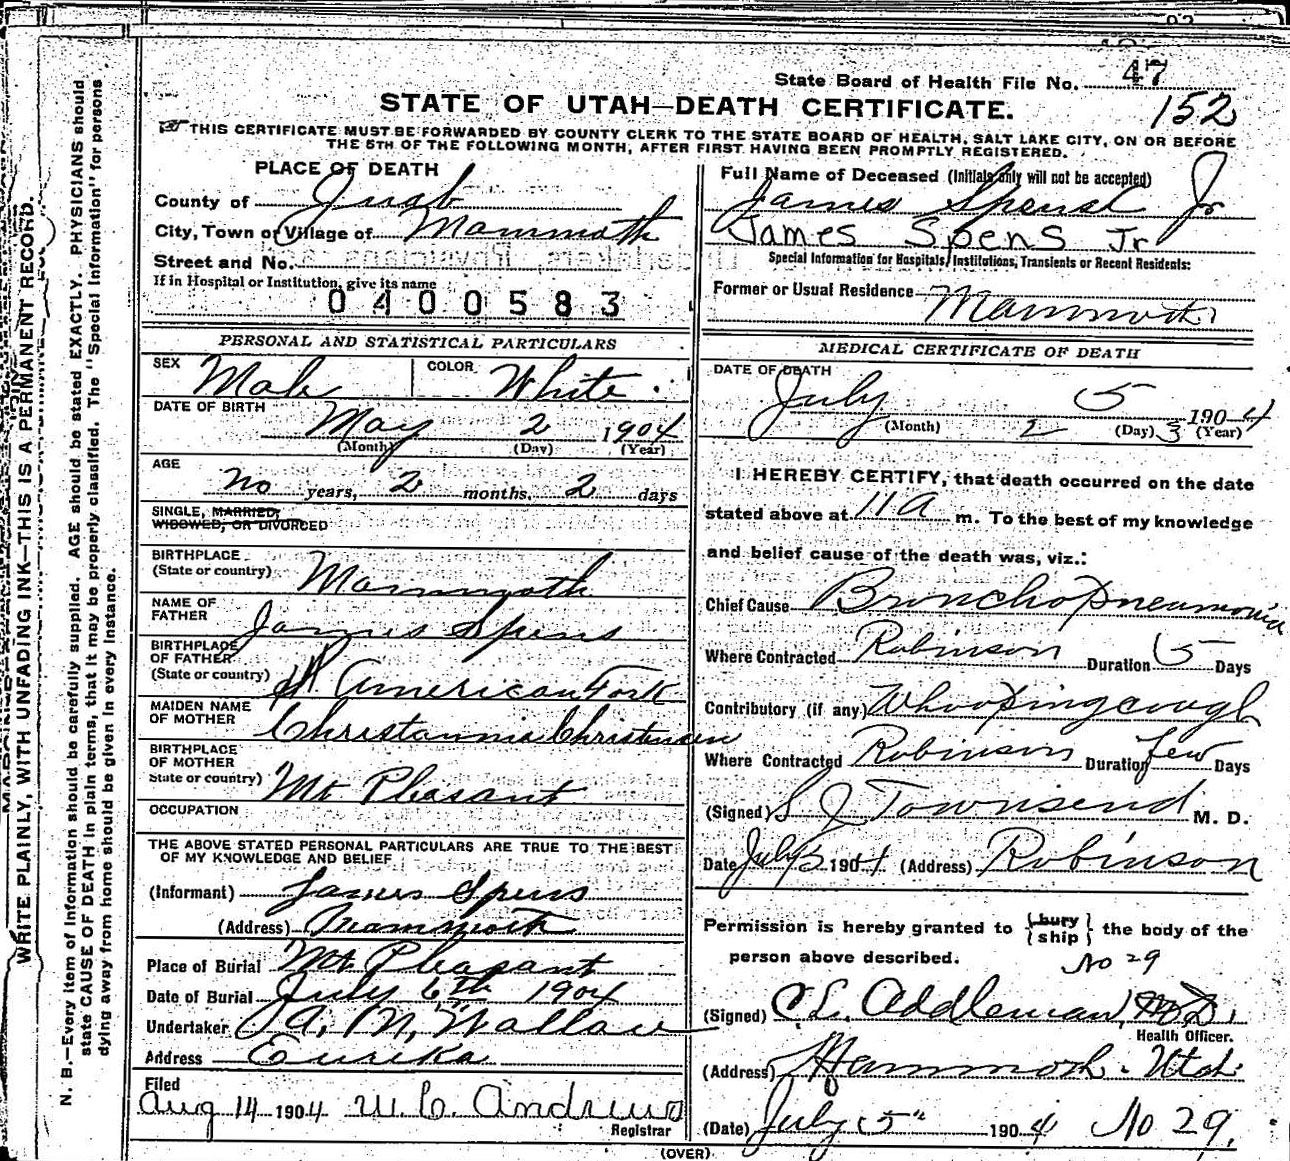 State Board of Health File No. 47
152
STATE OF UTAH—DEATH CERTIFICATE.
THIS CERTIFICATE MUST BE FORWARDED BY COUNTY CLERK TO THE STATE BOARD OF HEALTH, SALT LAKE CITY, ON OR BEFORE
THE 5TH OF THE FOLLOWING MONTH, AFTER FIRST HAVING BEEN PROMPTLY REGISTERED.
PLACE OF DEATH
County of Juab
City, Town or Village of Mammoth
Street and No.
If in Hospital or Institution, give its name
0400583
Full Name of Deceased (Initials only will not be accepted)
James Spens Jr
James Spens Jr
Special Information for Hospitals, Institutions, Transients or Recent Residents:
Former or Usual Residence Mammoth
PERSONAL AND STATISTICAL PARTICULARS
SEX Male COLOR White
DATE OF BIRTH May 2 1904
(Month) (Day) (Year)
AGE
no years, 2 months, 2 days
SINGLE, MARRIED,
WIDOWED, OR DIVORCED
BIRTHPLACE
(State or country) Mammoth
NAME OF
FATHER James Spens
BIRTHPLACE
OF FATHER
(State or country) American Fork
MAIDEN NAME
OF MOTHER Christannia Christensen
BIRTHPLACE
OF MOTHER
State or country) Mt Pleasant
OCCUPATION
THE ABOVE STATED PERSONAL PARTICULARS ARE TRUE TO THE BEST
OF MY KNOWLEDGE AND BELIEF
(Informant) James Spens
(Address) Mammoth
Place of Burial Mt. Pleasant
Date of Burial July 6th 1904
Undertaker A. M. Wallace
Address Eureka
Filed
Aug 14 1904 W. C. Andrews
Registrar
MEDICAL CERTIFICATE OF DEATH
DATE OF DEATH
July 5 1904
(Month) 2 (Day) 3 (Year)
I HEREBY CERTIFY, that death occurred on the date
stated above at 11 a m. To the best of my knowledge
and belief cause of the death was, viz.:
Chief Cause Broncho pneumonia
Where Contracted Robinson Duration 5 Days
Contributory (if any) Whooping cough
Where Contracted Robinson Duration few Days
(Signed) S J Townsend M. D.
Date July 5 1904 (Address) Robinson
Permission is hereby granted to {bury
ship} the body of the
person above described.
No 29
(Signed) C. E. Addleman,
Health Officer.
(Address) Mammoth. Utah
(Date) July 5" 1904 No 29.
(OVER)
WRITE PLAINLY, WITH UNFADING INK—THIS IS A PERMANENT RECORD.
N. B.—Every item of information should be carefully supplied. AGE should be stated EXACTLY. PHYSICIANS should
state CAUSE OF DEATH in plain terms, that it may be properly classified. The "Special Information" for persons
dying away from home should be given in every instance.